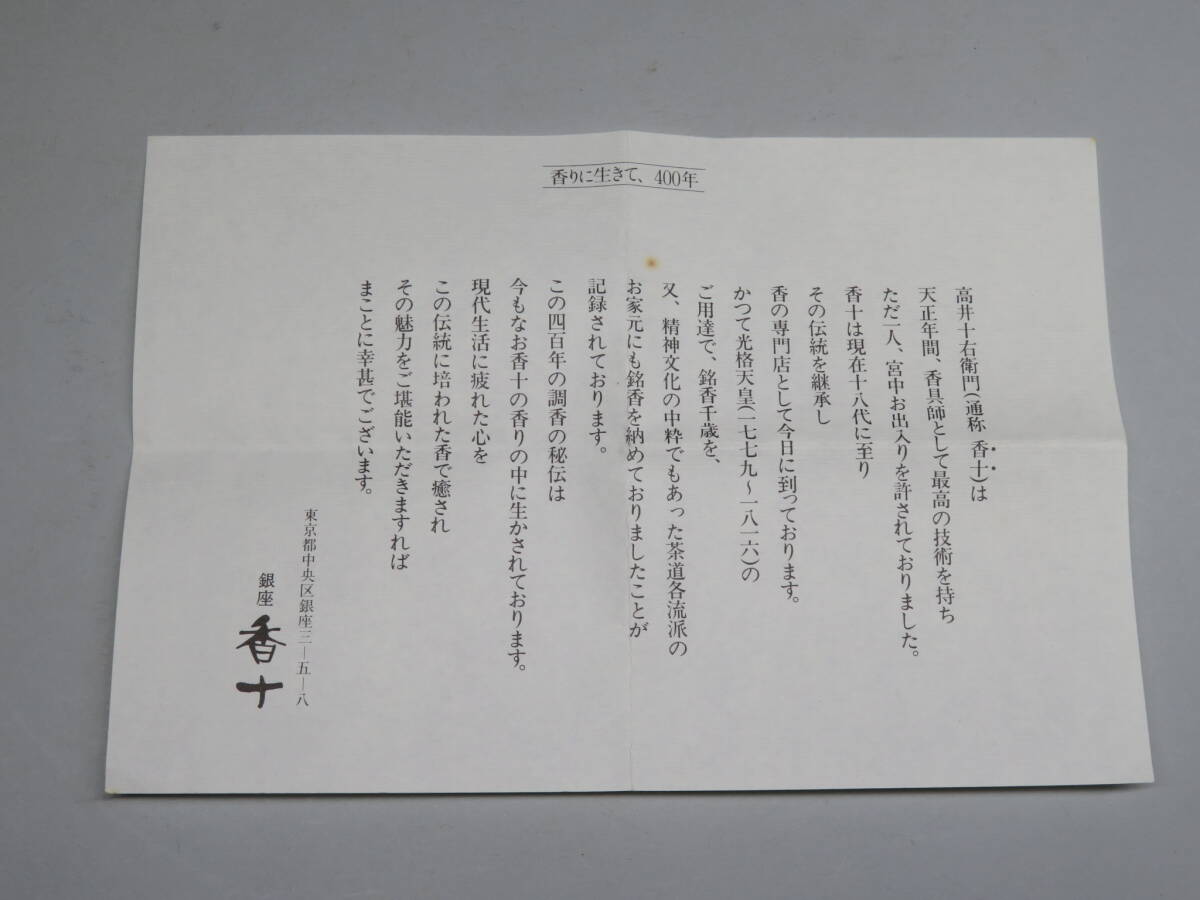 香りに生きて、400年
高井十右衛門(通称 香十)は
天正年間、香具師として最高の技術を持ち
ただ一人、宮中お出入りを許されておりました。
香十は現在十八代に至り
その伝統を継承し
香の専門店として今日に到っております。
かつて光格天皇(一七七九〜一八一六)の
ご用達で、銘香千歳を、
又、精神文化の中粋でもあった茶道各流派の
お家元にも銘香を納めておりましたことが
記録されております。
この四百年の調香の秘伝は
今もなお香十の香りの中に生かされております。
現代生活に疲れた心を
この伝統に培われた香で癒され
その魅力をご堪能いただきますれば
まことに幸甚でございます。
東京都中央区銀座三―五―八
銀座 香十